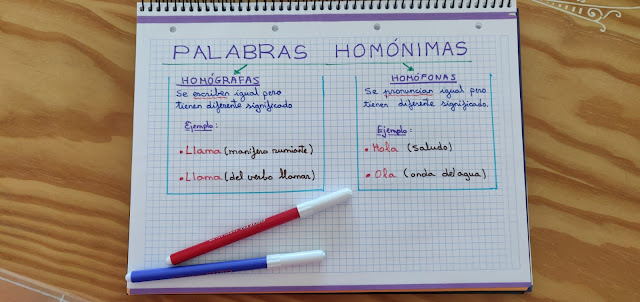 PALABRAS HOMÓNIMAS
HOMÓGRAFAS
Se escriben igual pero
tienen diferente significado
Ejemplo:
• Llama (mamífero rumiante)
• Llama (del verbo llamar)
HOMÓFONAS
Se pronuncian igual pero
tienen diferente significado.
Ejemplo:
• Hola (saludo)
• Ola (onda de agua)